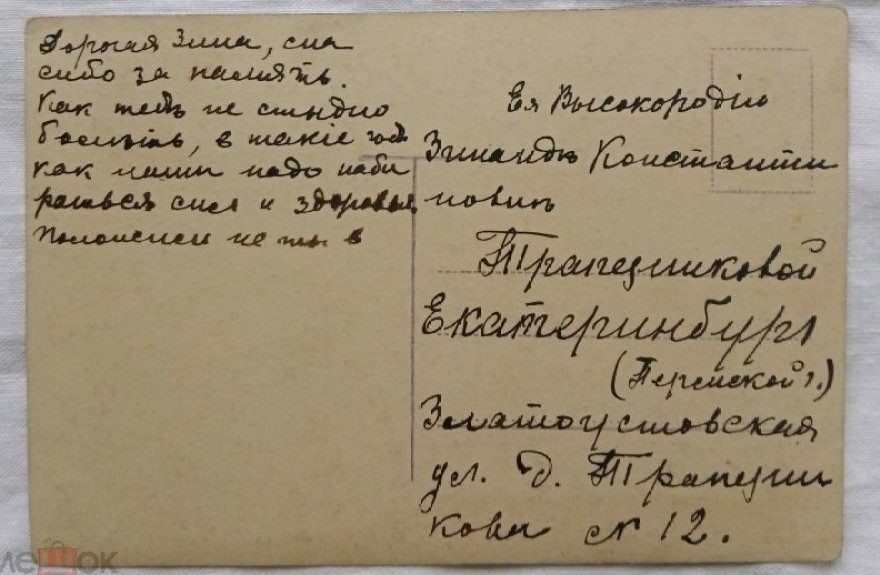 Дорогая Зина, спа
сибо за память.
Как тебѣ не стыдно
болѣть, в такіе
как наши надо наби
раться сил и здоровья.
не ты в
Ея Высокородію
Зинаидѣ Константи
новнѣ
Трапезниковой
Екатеринбург
(Пермской г.)
Златоустовская
ул. д. Трапезни
кова № 12.